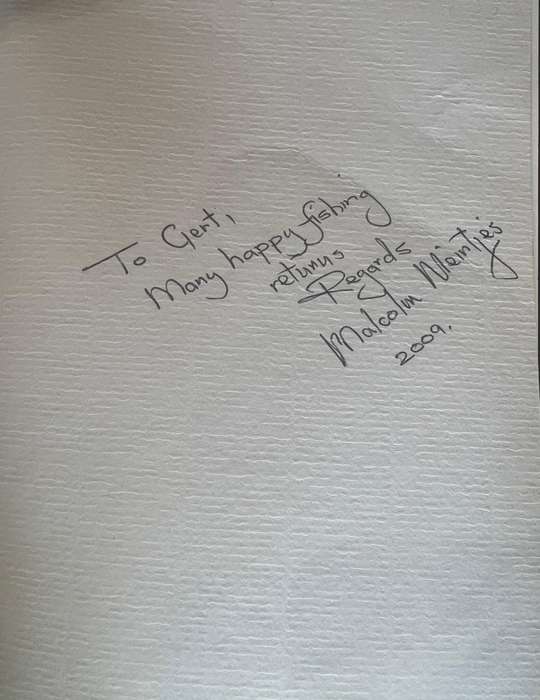 To Gert,
Many happy fishing
returns
Regards
Malcolm Meintjes
2009.